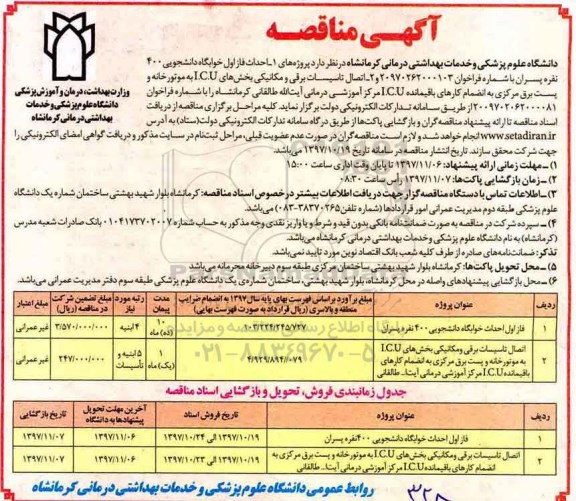 آگهـی مناقصـه
وزارت بهداشت، درمان و آموزش پزشکی
دانشگاه علوم پزشکی و خدمات
بهداشتی درمانی کرمانشاه
دانشگاه علوم پزشکی و خدمات بهداشتی درمانی کرمانشاه در نظر دارد پروژه‌های ۱ـ احداث فاز اول خوابگاه دانشجویی ۴۰۰
نفره پسران با شماره فراخوان ۲۰۹۷۰۲۶۲۰۰۰۱۰۳ و ۲ـ اتصال تاسیسات برقی و مکانیکی بخش‌های I.C.U به موتورخانه و
پست برق مرکزی به انضمام کارهای باقیمانده I.C.U مرکز آموزشی درمانی آیت‌الله طالقانی کرمانشاه را با شماره فراخوان
۲۰۰۹۷۰۲۰۶۲۰۰۰۰۸۱ از طریق سامانه تدارکات الکترونیکی دولت برگزار نماید. کلیه مراحل برگزاری مناقصه از دریافت
اسناد مناقصه تا ارائه پیشنهاد مناقصه‌گران و بازگشایی پاکت‌ها از طریق درگاه سامانه تدارکات الکترونیکی دولت (ستاد) به آدرس
www.setadiran.ir انجام خواهد شد و لازم است مناقصه‌گران در صورت عدم عضویت قبلی، مراحل ثبت‌نام در سایت مذکور و دریافت گواهی امضای الکترونیکی را
جهت شرکت محقق سازند. تاریخ انتشار مناقصه در سامانه تاریخ ۱۳۹۷/۱۰/۱۹ می‌باشد.
۱ـ مهلت زمانی ارائه پیشنهاد: ۱۳۹۷/۱۱/۰۶ تا پایان وقت اداری ساعت ۱۵:۰۰
۲ـ زمان بازگشایی پاکت‌ها: ۱۳۹۷/۱۱/۰۷ راس ساعت ۰۸:۳۰
۳ـ اطلاعات تماس با دستگاه مناقصه‌گزار جهت دریافت اطلاعات بیشتر در خصوص اسناد مناقصه: کرمانشاه بلوار شهید بهشتی ساختمان شماره یک دانشگاه
علوم پزشکی طبقه دوم مدیریت عمرانی امور قراردادها (شماره تلفن ۳۸۳۷۰۲۶۵-۰۸۳) می‌باشد.
۴ـ سپرده شرکت در مناقصه به صورت ضمانتنامه بانکی بدون قید و شرط و یا واریز نقدی وجه مذکور به حساب شماره ۰۱۰۴۱۷۳۷۰۲۰۰۷ بانک صادرات شعبه مدرس
(کرمانشاه) به نام دانشگاه علوم پزشکی و خدمات بهداشتی درمانی کرمانشاه می‌باشد.
تذکر: ضمانت‌نامه‌های صادره از طرف کلیه شعب بانک اقتصاد نوین مورد تایید نمی‌باشد.
۵ـ محل تحویل پاکت‌ها: کرمانشاه بلوار شهید بهشتی ساختمان مرکزی طبقه سوم دبیرخانه محرمانه می‌باشد.
۶ـ محل بازگشایی پیشنهادهای واصله در محل کرمانشاه بلوار شهید بهشتی، ساختمان شماره‌ی یک دانشگاه علوم پزشکی طبقه سوم دفتر مدیریت عمرانی می‌باشد.
ردیف | عنوان پروژه | مبلغ برآورد براساس فهرست بهای پایه سال ۱۳۹۷ به انضمام ضرایب منطقه و بالاسری (ریال قرارداد به صورت فهرست بهایی) | مدت پیمان | رتبه مورد نیاز | مبلغ تضمین شرکت در مناقصه (ریال) | مبلغ اعتبار
۱ | فاز اول احداث خوابگاه دانشجویی ۴۰۰ نفره پسران | ۱۰۳/۲۲۴/۲۴۵/۷۲۷ | ۱۰ (ده) ماه | ۴ ابنیه | ۳/۵۷۰/۰۰۰/۰۰۰ | غیر عمرانی
۲ | اتصال تاسیسات برقی و مکانیکی بخش‌های I.C.U به موتورخانه و پست برق مرکزی به انضمام کارهای باقیمانده I.C.U مرکز آموزشی درمانی آیت‌ا... طالقانی | ۴/۹۲۹/۸۹۴/۰۷۹ | ۱ (یک) ماه | ۵ ابنیه و تأسیسات | ۲۴۷/۰۰۰/۰۰۰ | غیر عمرانی
جدول زمانبندی فروش، تحویل و بازگشایی اسناد مناقصه
ردیف | عنوان پروژه | تاریخ فروش اسناد | آخرین مهلت تحویل پیشنهادها به دانشگاه | تاریخ بازگشایی
۱ | فاز اول احداث خوابگاه دانشجویی ۴۰۰ نفره پسران | ۱۳۹۷/۱۰/۱۹ الی ۱۳۹۷/۱۰/۲۴ | ۱۳۹۷/۱۱/۰۶ | ۱۳۹۷/۱۱/۰۷
۲ | اتصال تاسیسات برقی و مکانیکی بخش‌های I.C.U به موتورخانه و پست برق مرکزی به انضمام کارهای باقیمانده I.C.U مرکز آموزشی درمانی آیت‌ا... طالقانی | ۱۳۹۷/۱۰/۱۹ الی ۱۳۹۷/۱۰/۲۳ | ۱۳۹۷/۱۱/۰۶ | ۱۳۹۷/۱۱/۰۷
روابط عمومی دانشگاه علوم پزشکی و خدمات بهداشتی درمانی کرمانشاه
۰۲۱-۸۸۳۴۹۶۷۰-۵